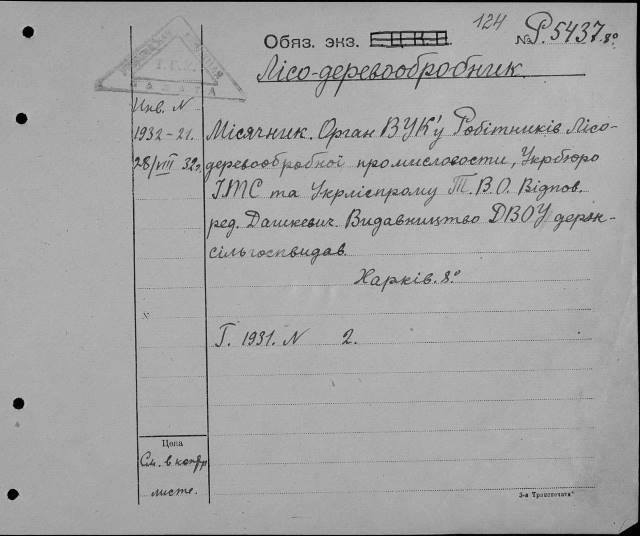 124
Обяз. экз. Ц.К.П. № Р.5437.8°
Лісо-деревообробник.
Инв. N
1932-21.
28/VIII 32г.
Місячник. Орган ВУК'у Робітників Лісо-
деревообробної промисловости, Укрбюро
ІТС та Укрліспрому Т.В.О. Відпов.
ред. Дашкевич. Видавництво ДВОУ держ-
сільгоспвидав.
Харків. 8°
x
Г. 1931. N 2.
Цена
См. в контр
листе.
3-я Транспечать